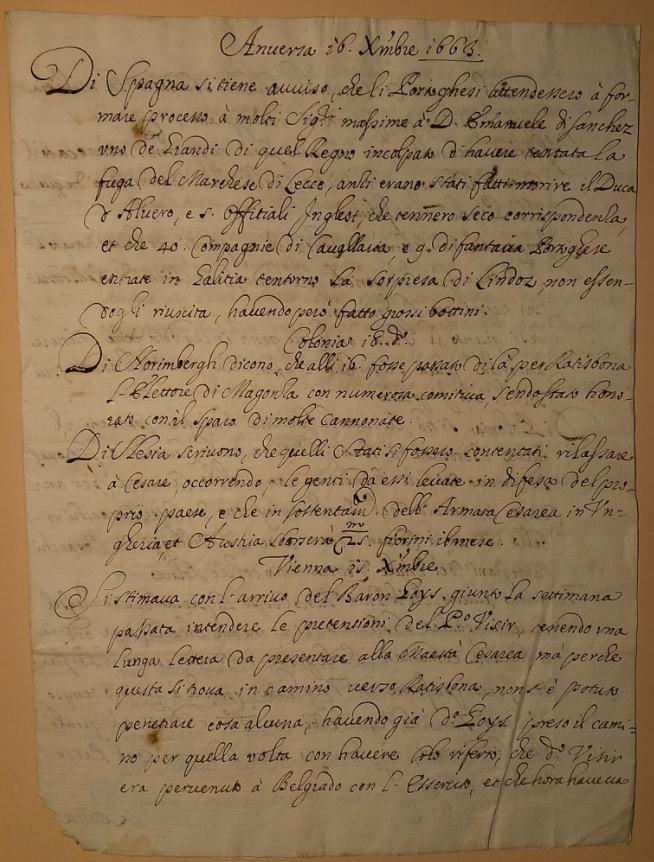 Anversa 16. Xmbre 1663.
Di Spagna si tiene avviso, che li Portoghesi attendessero à for-
mare processo à molti Sigri. massime à D. Emanuele di Sanchez
uno de Grandi di quel Regno incolpato d'havere tentata la
fuga del Marchese di Lecce, anzi erano stati fatti morire il Duca
d'Alvero, e 5. Offitiali Inglesi, che tennero seco corrispondenza,
et che 40. Compagnie di Cavallaria, e 9. di fantaria Portoghese
entrate in Galitia tentorno la sorpresa di Lindoz, non essen-
dogli riuscita, havendo però fatto grossi bottini.
Colonia 18. do.
Di Norimbergh dicono, che alli 16. fosse passato di là per Ratisbona
l'Elettore di Magonza con numerosa comitiva, sendo stato hono-
rato con il sparo di molte cannonate.
Di Slesia scrivono, che quelli Stati si fossero contentati rilassare
à Cesare, occorrendo le genti da essi levate in difesa del pro-
prio paese, e che in sostentam.to dell'Armata Cesarea in Un-
gheria, et Austria sborserà m/25. fiorini il mese.
Vienna 15. Xmbre
Si stimava con l'arrivo del Baron Goys, giunto la settimana
passata intendere le pretensioni del P.o Visir, tenendo una
lunga lettera da presentare alla Maestà Cesarea, mà perche
questa si trova in camino verso Ratisbona, non s'è potuto
penetrare cosa alcuna, havendo già do. Goys preso il cami-
no per quella volta con havere solo riferto, che do. Visir
era pervenuto à Belgrado con l'Essercito, et che hora haveva